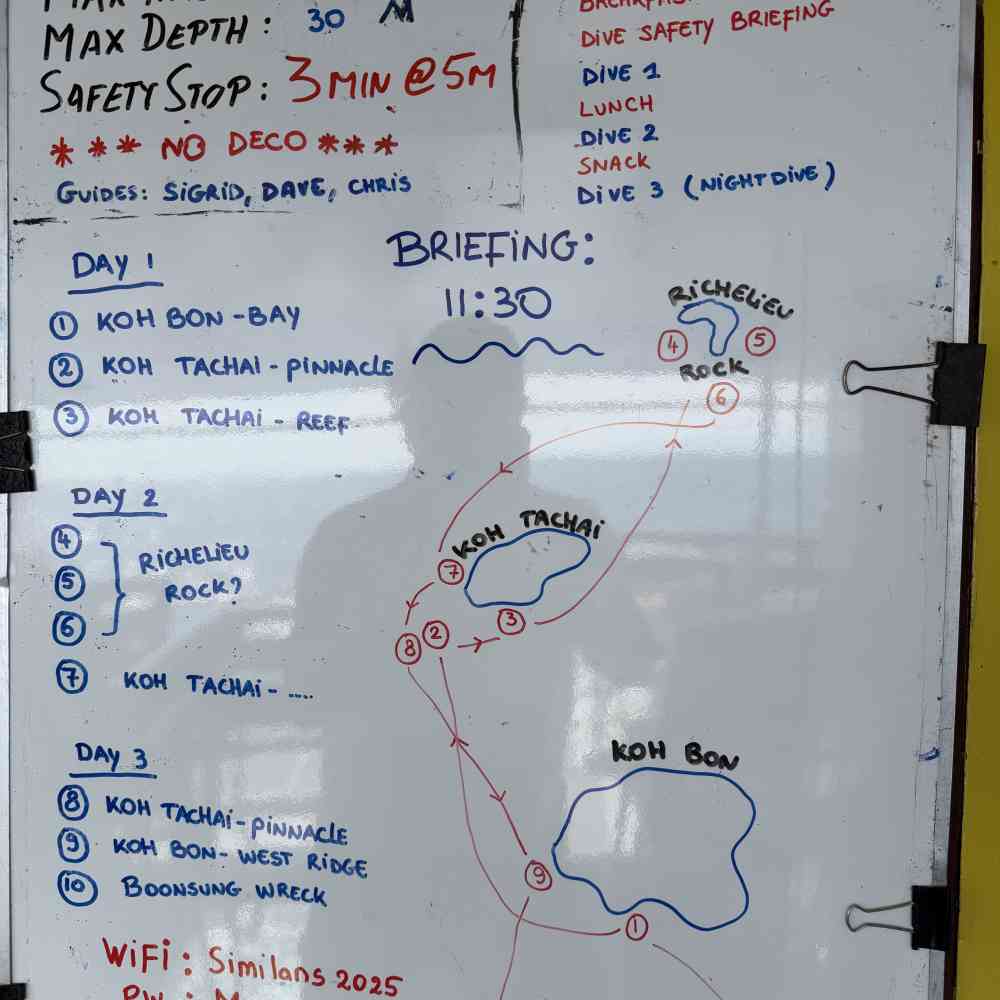 MAX DEPTH: 30 M
SAFETY STOP: 3 MIN @ 5M
*** NO DECO ***
GUIDES: SIGRID, DAVE, CHRIS
DIVE SAFETY BRIEFING
DIVE 1
LUNCH
DIVE 2
SNACK
DIVE 3 (NIGHTDIVE)
BRIEFING:
11:30
DAY 1
1 KOH BON - BAY
2 KOH TACHAI - PINNACLE
3 KOH TACHAI - REEF
DAY 2
4
5
6
RICHELIEU
ROCK?
7 KOH TACHAI - .....
DAY 3
8 KOH TACHAI - PINNACLE
9 KOH BON - WEST RIDGE
10 BOONSUNG WRECK
WiFi: Similans 2025
RICHELIEU
4 5
ROCK
6
KOH TACHAI
7
3
8 2
KOH BON
9
1